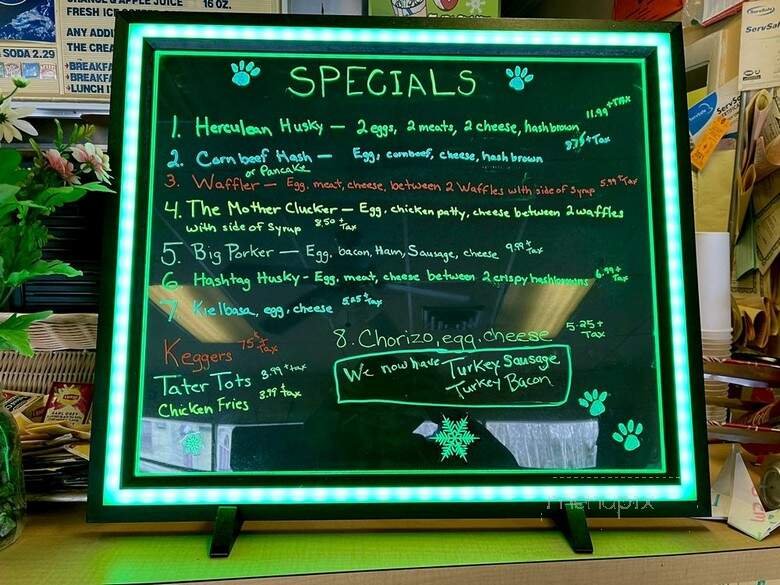 ORANGE & APPLE JUICE 16 OZ.
FRESH ICE
ANY ADDI
THE CREA
SODA 2.29
BREAKFA
BREAKFA
LUNCH
ServSafe
SPECIALS
1. Herculean Husky - 2 eggs, 2 meats, 2 cheese, hashbrown 11.99+Tax
2. Cornbeef Hash - Egg, cornbeef, cheese, hashbrown 8.75+Tax
or Pancake
3. Waffler - Egg, meat, cheese, between 2 Waffles with side of Syrup 5.99+Tax
4. The Mother Clucker - Egg, chicken patty, cheese between 2 waffles
with side of Syrup 8.50+Tax
5. Big Porker - Egg, bacon, Ham, Sausage, cheese 9.99+Tax
6. Hashtag Husky - Egg, meat, cheese between 2 crispy hashbrowns 6.99+Tax
7. Kielbasa, egg, cheese 5.25+Tax
8. Chorizo, egg, cheese 5.25+Tax
Keggers 75¢+Tax
Tater Tots 3.99+tax
Chicken Fries 3.99+tax
We now have Turkey Sausage
Turkey Bacon
menupix